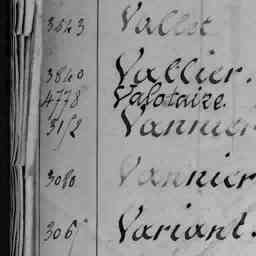 3843 Vallet
3840 Vallier.
4778 Valotaize.
3152 Vannier
3080 Vannier
306 Variant.